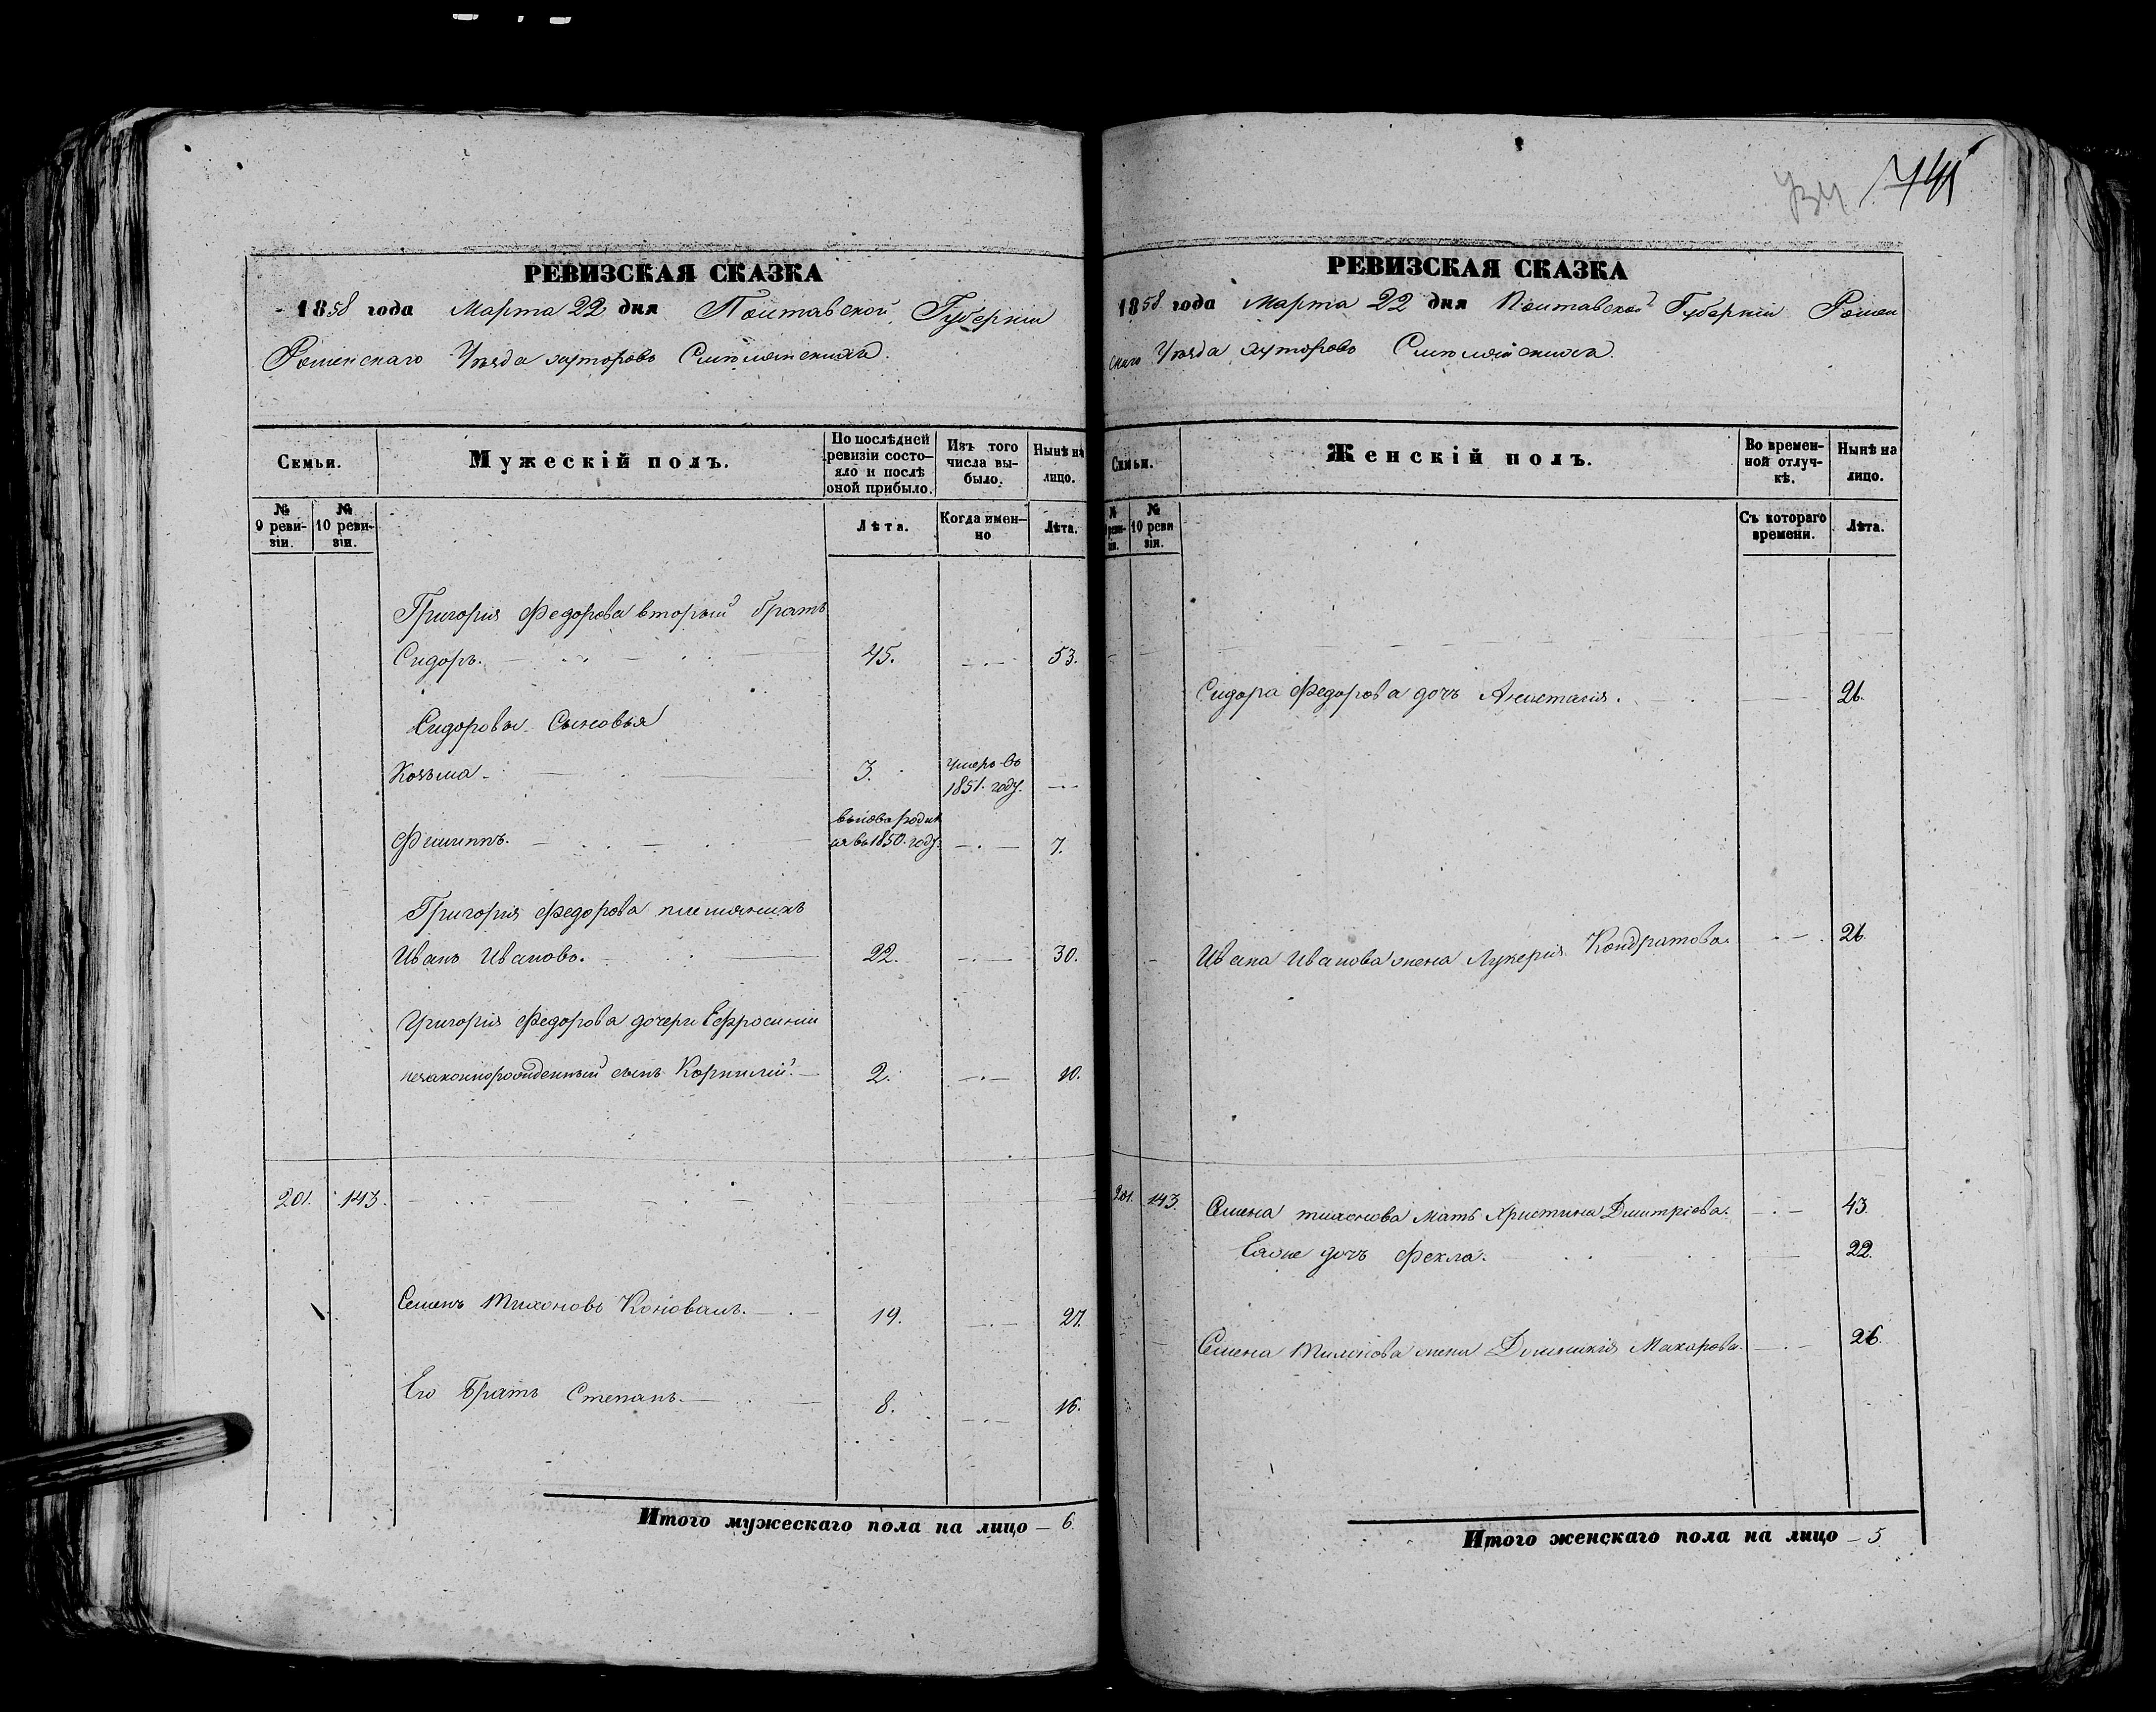 РЕВИЗСКАЯ СКАЗКА
1858 года Марта 22 дня Полтавской Губерніи
Роменскаго Уѣзда хуторовъ
Семьи.
Мужескій полъ.
По послѣдней ревизіи состо-
яло и послѣ
оной прибыло.
Изъ того
числа вы-
было.
Нынѣ на
лицо.
№
9 реви-
зіи.
№
10 реви-
зіи.
Лѣта.
Когда имен-
но
Лѣта.
Григорія Федорова вторый братъ
Сидоръ. 45. 53.
Сидоровы Сыновья
Козьма 3. умеръ въ
1851. году.
Филиппъ. вновь родил
ся въ 1850. году. 7.
Григорія Федорова племяникъ
Иванъ Ивановъ. 22. 30.
Григорія Федорова дочери Ефросиніи
незаконнорожденный сынъ Корнилій. 2. 10.
201. 143.
Семенъ Тихоновъ Коновалъ. 19. 27.
Его Братъ Степанъ. 8. 16.
Итого мужескаго пола на лицо — 6
741
РЕВИЗСКАЯ СКАЗКА
1858 года Марта 22 дня Полтавской Губерніи Ромен
скаго Уѣзда хуторовъ
Семьи.
Женскій полъ.
Во времен-
ной отлуч-
кѣ.
Нынѣ на
лицо.
№
9 реви-
зіи.
№
10 реви
зіи.
Съ котораго
времени.
Лѣта.
Сидора Федорова дочь Анастасія. 26.
Ивана Иванова жена Лукерія Кондратова. 26.
201. 143. Семена Тихонова Мать Христина Дмитріева. 43.
Еяже дочь Фекла. 22.
Семена Тихонова жена Домникія Макарова. 26.
Итого женскаго пола на лицо — 5